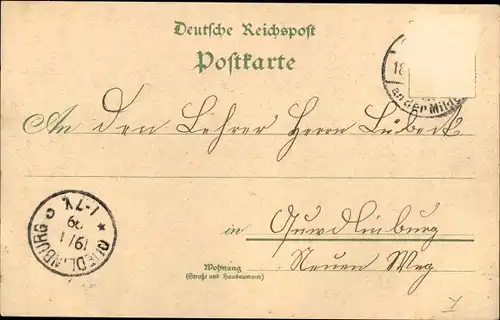 Deutsche Reichspost
Postkarte
18
an der Milde
An den Lehrer Herrn Lübeck
in Quedlinburg
Wohnung
(Straße und Hausnummer)
Neuen Weg
QUEDLINBURG
19/1
99
1-7V.
c